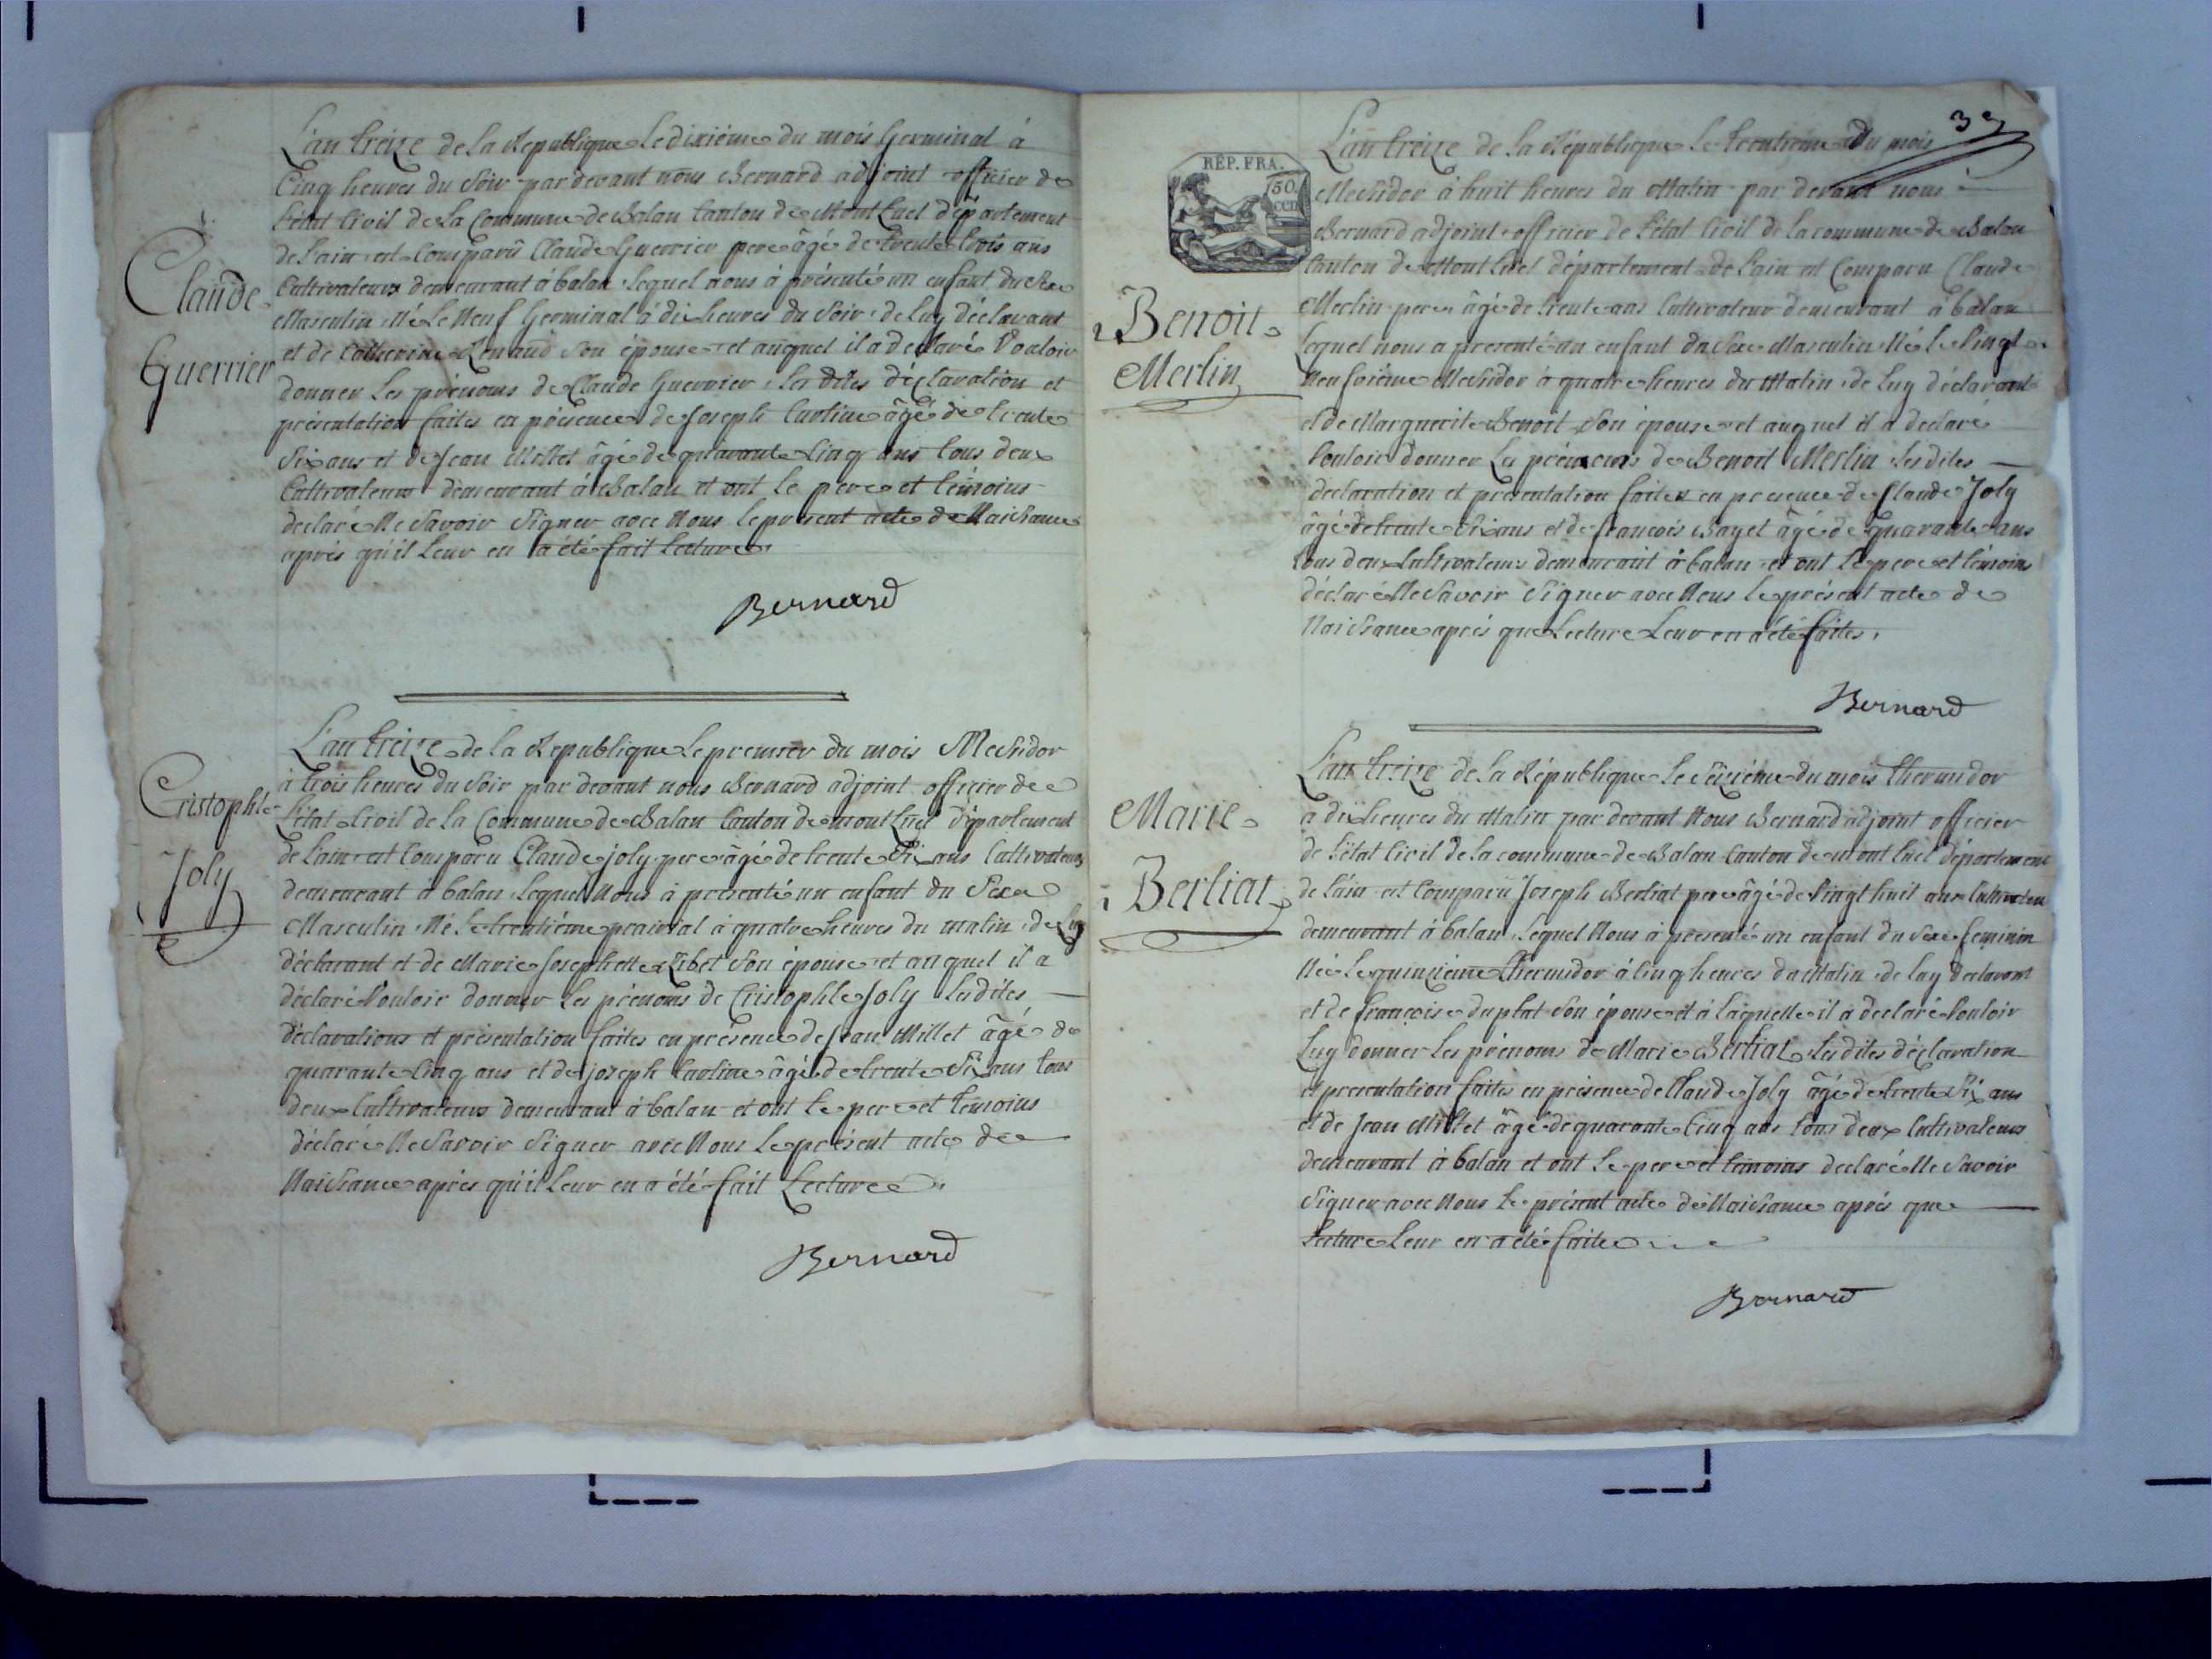 Claude
Guerrier
L'an treize de la Republique le dixième du mois Germinal à
Cinq heures du Soir par devant nous Bernard adjoint officier de
l'état Civil de la Commune de Balan Canton de Mont Luel département
de l'ain est Comparû Claude Guerrier pere âgé de trente trois ans
Cultivateurs demeurant à balan lequel nous à présenté un enfant du Sexe
Masculin Né le Neuf Germinal à dix heures du Soir de luy déclarant
et de Catherine Renaud Son épouse et auquel il a déclaré Vouloir
donner les prénoms de Claude Guerrier les dites déclaration et
présentation faites en présence de Joseph age de trente
Six ans et de Jean Millet âgé de quarante Cinq ans tous deux
Cultivateurs demeurant à Balan et ont le pere et témoins
declaré Ne Savoir Signer avec Nous le present acte de Naissance
après qu'il leur en a été fait Lecture.
Bernard
Cristophle
Joly
L'an treize de la Republique le premier du mois Messidor
à trois heures du Soir par devant nous Bernard adjoint officier de
l'état Civil de la Commune de Balan Canton de mont Luel département
de l'ain est Comparu Claude joly pere âgé de trente Six ans Cultivateurs
demeurant à balan lequel Nous à présenté un enfant du Sexe
Masculin Né le trentième prairial à quatre heures du matin de luy
déclarant et de Marie Josephette Ribet Son épouse et auquel il a
déclaré Vouloir donner les prénoms de Cristophle Joly les dites
déclarations et présentation faites en présence de Jean Millet âgé de
quarante Cinq ans et de joseph âgé de trente Six ans tous
deux Cultivateurs demeurant à balan et ont le pere et témoins
déclaré Ne Savoir Signer avec Nous le présent acte de
Naissance après qu'il leur en a été fait Lecture.
Bernard
37
RÉP. FRA.
50
cen
Benoit
Merlin
L'an treize de la République le trentième du mois
Messidor à huit heures du Matin par devant nous
Bernard adjoint officier de l'état Civil de la commune de Balan
Canton de Mont Luel département de l'ain est Comparu Claude
Merlin pere âgé de trente ans Cultivateur demeurant à balan
lequel nous a presenté un enfant du Sexe Masculin Né le Vingt
Neufvième Messidor à quatre heures du Matin de luy déclarant
et de Marguerite Benoit Son épouse et auquel il a declaré
Vouloir donner les prénoms de Benoit Merlin les dites
declaration et présentation faites en presence de Claude Joly
âgé de trente Six ans et de françois Bayet âgé de quarante ans
tous deux Cultivateurs demeurant à balan et ont le pere et témoins
déclaré Ne Savoir Signer avec Nous le présent acte de
Naissance après que Lecture Leur en a été faites.
Bernard
Marie
Berliat
L'an treize de la République le Seizième du mois thermidor
a dix heures du Matin par devant Nous Bernard adjoint officier
de l'état Civil de la commune de Balan Canton de mont Luel département
de l'ain est Comparu Joseph Berliat pere âgé de Vingt huit ans Cultivateur
demeurant à balan, lequel Nous à présenté un enfant du Sexe feminin
Née le quinzième thermidor à Cinq heures du Matin de luy declarant
et de françoise duplat Son épouse et à laquelle il a declaré Vouloir
luy donner les prénoms de Marie Berliat les dites déclaration
et presentation faites en présence de Claude Joly âgé de trente Six ans
et de Jean Millet âgé de quarante Cinq ans tous deux Cultivateurs
demeurant à balan et ont le pere et témoins declaré Ne Savoir
Signer avec Nous le présent acte de Naissance après que
Lecture Leur en a été faite
Bernard